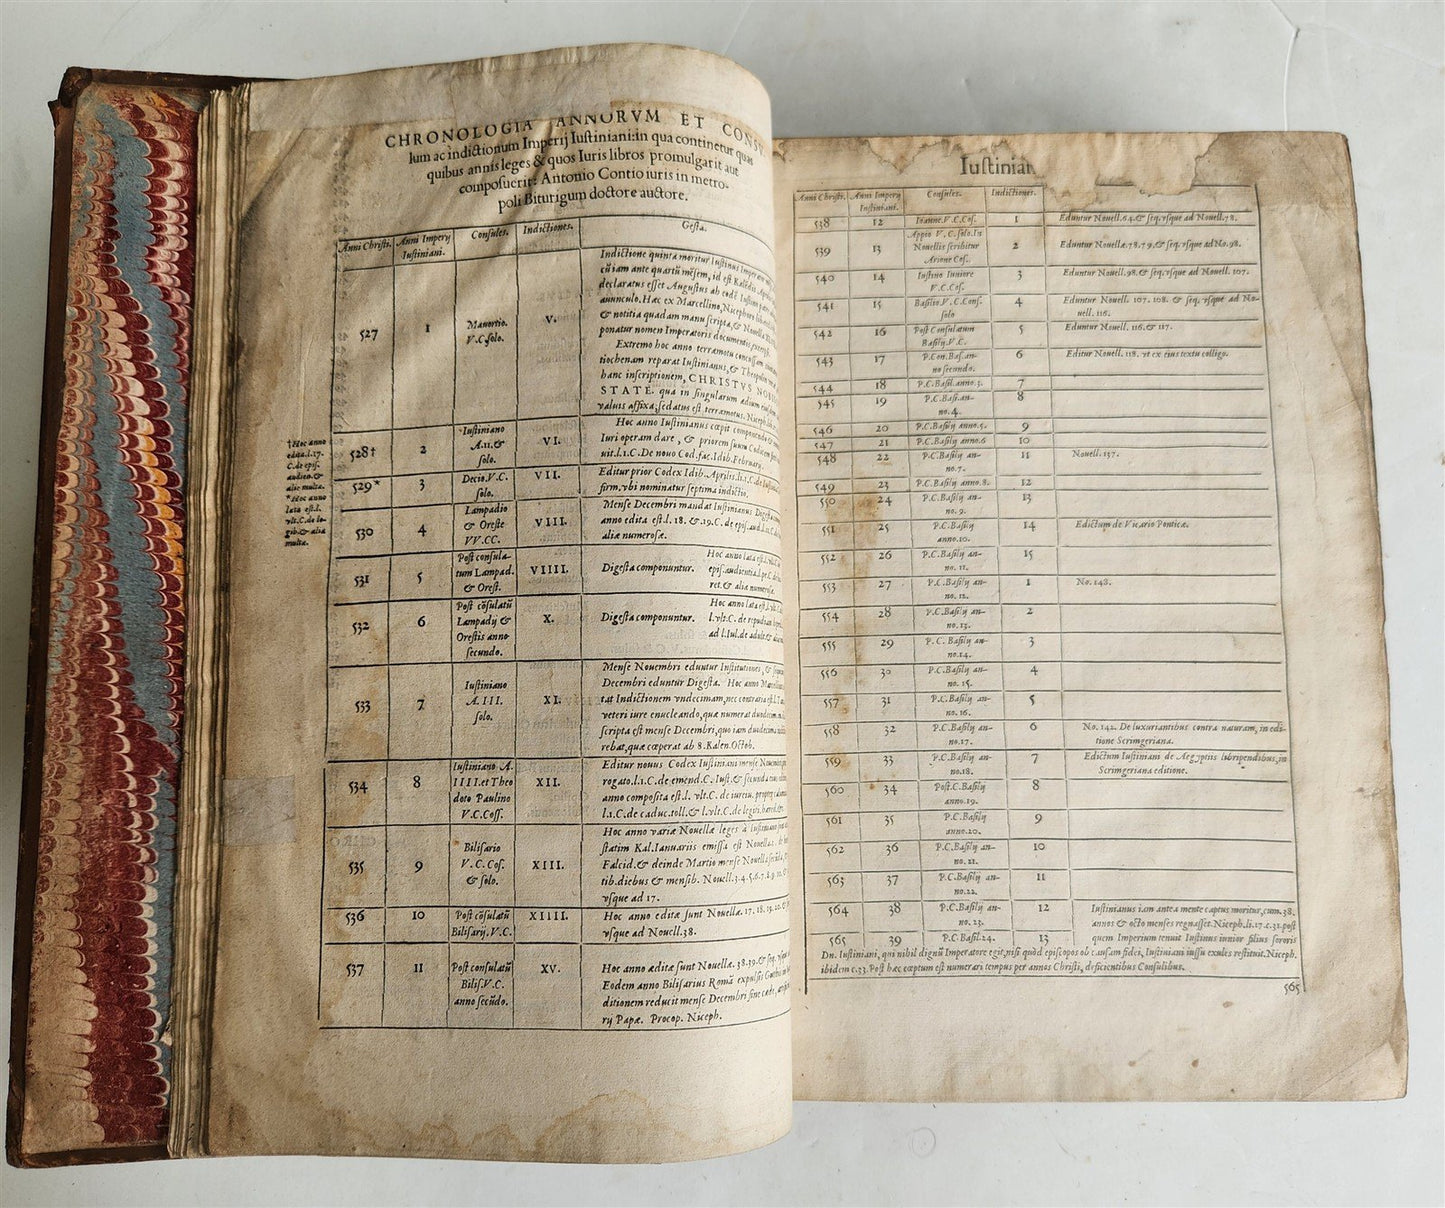 CHRONOLOGIA ANNORVM ET CONS
lum ac indictionum Imperij Iustiniani: in qua continetur quas
quibus annis leges & quos Iuris libros promulgarit aut
composuerit: Antonio Contio iuris in metro-
poli Biturigum doctore auctore.
Anni Christi. Anni Imperij Iustiniani. Consules. Indictiones. Gesta.
527 1 Mauortio. V.C. solo. V.
Indictione quinta moritur Iustinus Imperator
cũ iam ante quartũ mẽsem, id est Kalẽdis Aprilis
declaratus esset Augustus ab eodẽ Iustino
auunculo. Hac ex Marcellino, Nicephoro
& notitia quadam manu scripta, & Nouella
ponatur nomen Imperatoris documentis
Extremo hoc anno terramotu concussam
tiochenam reparat Iustinianus, & Theopolim
hanc inscriptionem, CHRISTVS NOBIS
STATE. qua in singularum ædium
valuis affixa, sedatus est terramotus. Niceph.
†Hoc anno
edita l. 17.
C. de epis.
audien. &
aliæ multæ.
*Hoc anno
lata est l.
vlt. C. de le-
gib. & alia
multa.
528† 2 Iustiniano A. II. & solo. VI.
Hoc anno Iustinianus cœpit componendo
Iuri operam dare, & priorem suum Codicem
uit. l. 1. C. De nouo Cod. fac. Idib. February.
529* 3 Decio. V.C. solo. VII.
Editur prior Codex Idib. Aprilis. l. 1. C. de Iustinia
firm. vbi nominatur septima indictio.
530 4 Lampadio & Oreste VV.CC. VIII.
Mense Decembri mandat Iustinianus Digesta
anno edita est l. 18. & 19. C. de epis. aud.
aliæ numerosæ.
531 5 Post consula- tum Lampad. & Orest. VIIII.
Digesta componuntur.
Hoc anno lata est l.
epis. audientia. l. pe. C.
ret. & alia numerosa.
532 6 Post cõsulatũ Lampadij & Orestis anno secundo. X.
Digesta componuntur.
Hoc anno lata est l. vlt. C.
l. vlt. C. de repudiis
ad l. Iul. de adult. &
533 7 Iustiniano A. III. solo. XI.
Mense Nouembri eduntur Institutiones, &
Decembri eduntur Digesta. Hoc anno
tat Indictionem vndecimam, nec contraria est l.
veteri iure enucleando, quæ numerat duodecim
scripta est mense Decembri, quo iam duodecima
rebat, quæ cœperat ab 8. Kalen. Octob.
534 8 Iustiniano A. IIII. et Theo doto Paulino V.C. Coss. XII.
Editur nouus Codex Iustiniani mense Nouembri
rogato. l. 1. C. de emend. C. Iust. & secunda
anno composita est. l. vlt. C. de iureiu. propter
l. 1. C. de caduc. toll. & l. vlt. C. de legiti. hared.
535 9 Bilisario V.C. Cos. & solo. XIII.
Hoc anno variæ Nouellæ leges à Iustiniano
statim Kal. Ianuariis emissa est Nouella
Falcid. & deinde Martio mense Nouella secũda
tib. diebus & mensib. Nouell. 3. 4. 5. 6. 7. 8. 9. 10. &
vsque ad 17.
536 10 Post cõsulatũ Bilisarij. V.C. XIIII.
Hoc anno editæ sunt Nouellæ. 17. 18. 19. 20. &
vsque ad Nouell. 38.
537 11 Post consulatũ Bilis. V.C. anno secũdo. XV.
Hoc anno æditæ sunt Nouellæ. 38. 39. & seq.
Eodem anno Bilisarius Romã expulsis Gotthis
ditionem reducit mense Decembri sine cæde,
rij Papæ. Procop. Niceph.
Iustinian
Anni Christi. Anni Imperij Iustiniani. Consules. Indictiones.
538 12 Ioanne. V.C. Cos. 1 Eduntur Nouell. 64. & seq. vsque ad Nouell. 78.
539 13 Appio V.C. solo. In Nouellis scribitur Arione Cos. 2 Eduntur Nouellæ. 78. 79. & seq. vsque ad No. 98.
540 14 Iustino Iuniore V.C. Cos. 3 Eduntur Nouell. 98. & seq. vsque ad Nouell. 107.
541 15 Basilio. V.C. Cons. solo 4 Eduntur Nouell. 107. 108. & seq. vsque ad No-
uell. 116.
542 16 Post Consulatum Basilij. V.C. 5 Eduntur Nouell. 116. & 117.
543 17 P. Con. Bas. an- no secundo. 6 Editur Nouell. 118. vt ex eius textu colligo.
544 18 P.C. Basil. anno. 3. 7
545 19 P.C. Basi. an- no. 4. 8
546 20 P.C. Basilij anno. 5. 9
547 21 P.C. Basilij anno. 6 10
548 22 P.C. Basilij an- no. 7. 11 Nouell. 137.
549 23 P.C. Basilij anno. 8. 12
550 24 P.C. Basilij an- no. 9. 13
551 25 P.C. Basilij anno. 10. 14 Edictum de Vicario Ponticæ.
552 26 P.C. Basilij an- no. 11. 15
553 27 P.C. Basilij an- no. 12. 1 No. 148.
554 28 P.C. Basilij an- no. 13. 2
555 29 P.C. Basilij an- no. 14. 3
556 30 P.C. Basilij an- no. 15. 4
557 31 P.C. Basilij an- no. 16. 5
558 32 P.C. Basilij an- no. 17. 6 No. 142. De luxuriantibus contra naturam, in edi-
tione Scrimgeriana.
559 33 P.C. Basilij an- no. 18. 7 Edictum Iustiniani de Aegyptiis libripendibus, in
Scrimgeriana editione.
560 34 Post. C. Basilij anno. 19. 8
561 35 P.C. Basilij anno. 20. 9
562 36 P.C. Basilij an- no. 21. 10
563 37 P.C. Basilij an- no. 22. 11
564 38 P.C. Basilij an- no. 23. 12
565 39 P.C. Basil. 24. 13
Iustinianus iam antea mente captus moritur, cum. 38.
annos & octo menses regnasset. Niceph. li. 17. c. 31. post
quem Imperium tenuit Iustinus iunior filius sororis
Dn. Iustiniani, qui nihil dignũ Imperatore egit, nisi quòd episcopos ob causam fidei, Iustiniani iussu exules restituit. Niceph.
ibidem c. 33. Post hæc cœptum est numerari tempus per annos Christi, deficientibus Consulibus.
565